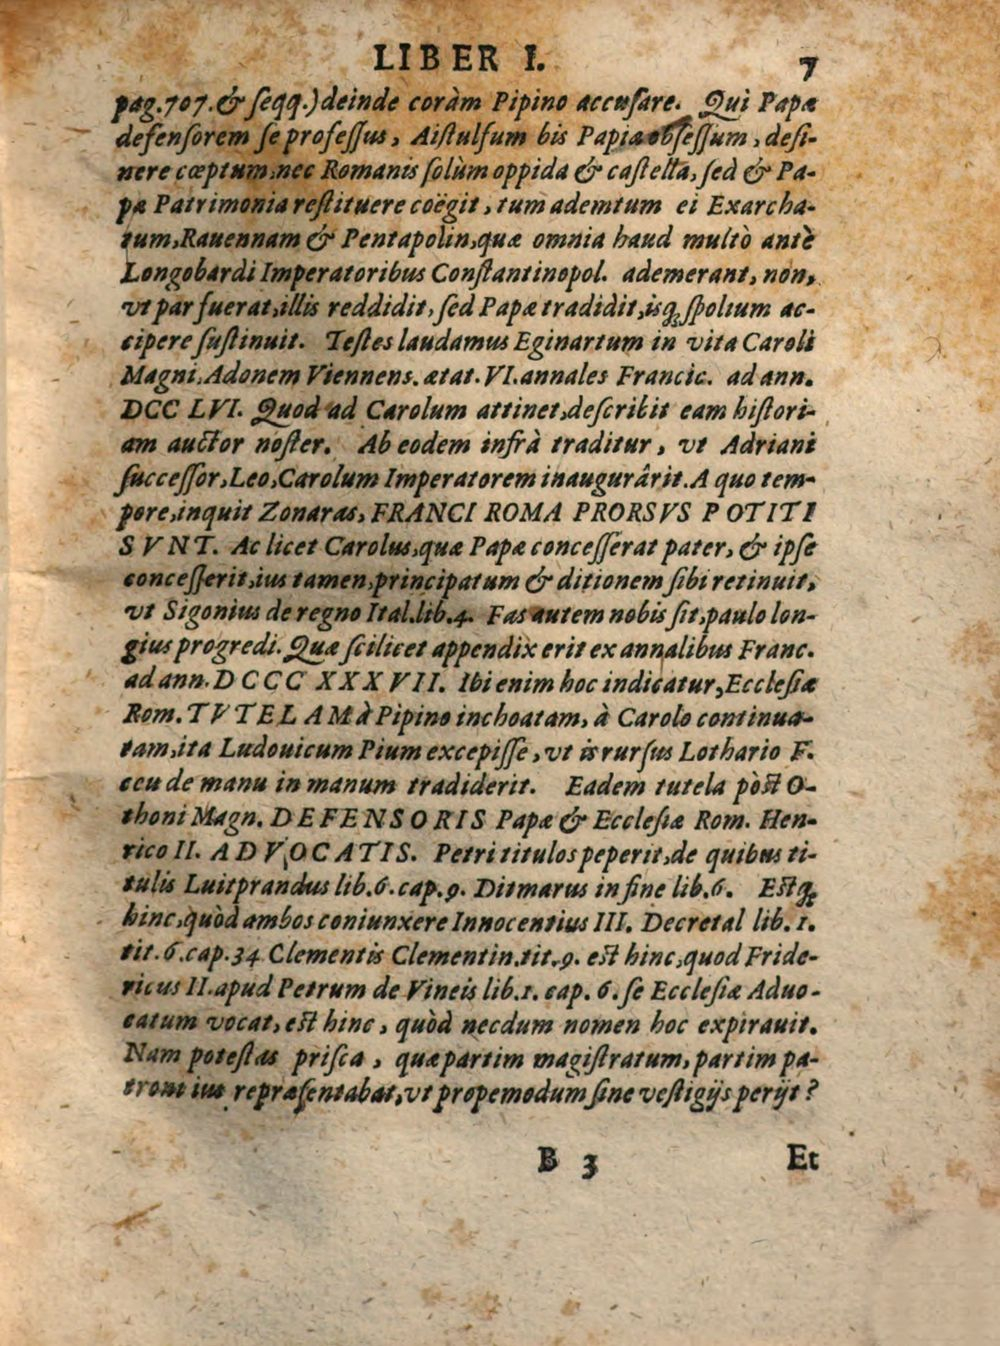 LIBER I. 7
pag.707.& ſeqq.) deinde coràm Pipino accuſare. Qui Papæ
defenſorem ſe profeſſus, Aiſtulfum bis Papia obſeſſum, deſi-
nere cœptum, nec Romanis ſolùm oppida & caſtella, ſed & Pa-
pæ Patrimonia reſtituere coëgit, tum ademtum ei Exarcha-
tum, Rauennam & Pentapolin, quæ omnia haud multò antè
Longobardi Imperatoribus Conſtantinopol. ademerant, non,
vt par fuerat, illis reddidit, ſed Papæ tradidit, isq; ſpolium ac-
cipere ſuſtinuit. Teſtes laudamus Eginartum in vita Caroli
Magni, Adonem Viennens. ætat. VI. annales Francic. ad ann.
DCC LVI. Quod ad Carolum attinet, deſcribit eam hiſtori-
am auctor noſter. Ab eodem infrà traditur, vt Adriani
ſucceſſor, Leo, Carolum Imperatorem inaugurârit. A quo tem-
pore, inquit Zonaras, FRANCI ROMA PRORSVS POTITI
SVNT. Ac licet Carolus, quæ Papæ conceſſerat pater, & ipſe
conceſſerit, ius tamen, principatum & ditionem ſibi retinuit,
vt Sigonius de regno Ital.lib.4. Fas autem nobis ſit, paulo lon-
gius progredi. Quæ ſcilicet appendix erit ex annalibus Franc.
ad ann. DCCC XXXVII. Ibi enim hoc indicatur, Eccleſiæ
Rom. TVTELAM à Pipino inchoatam, à Carolo continua-
tam, ita Ludouicum Pium excepiſſe, vt is rurſus Lothario F.
ceu de manu in manum tradiderit. Eadem tutela pòſt O-
thoni Magn. DEFENSORIS Papæ & Eccleſiæ Rom. Hen-
rico II. ADVOCATIS. Petri titulos peperit, de quibus ti-
tulis Luitprandus lib.6.cap.9. Ditmarus in fine lib.6. Eſtq;
hinc, quòd ambos coniunxere Innocentius III. Decretal lib. 1.
tit.6.cap.34 Clementis Clementin.tit.9. eſt hinc, quod Fride-
ricus II. apud Petrum de Vineis lib.1. cap. 6. ſe Eccleſiæ Aduo-
catum vocat, eſt hinc, quòd necdum nomen hoc expirauit.
Nam poteſtas priſca, quæ partim magiſtratum, partim pa-
troni ius repræſentabat, vt propemodum ſine veſtigijs perijt?
B 3 Et